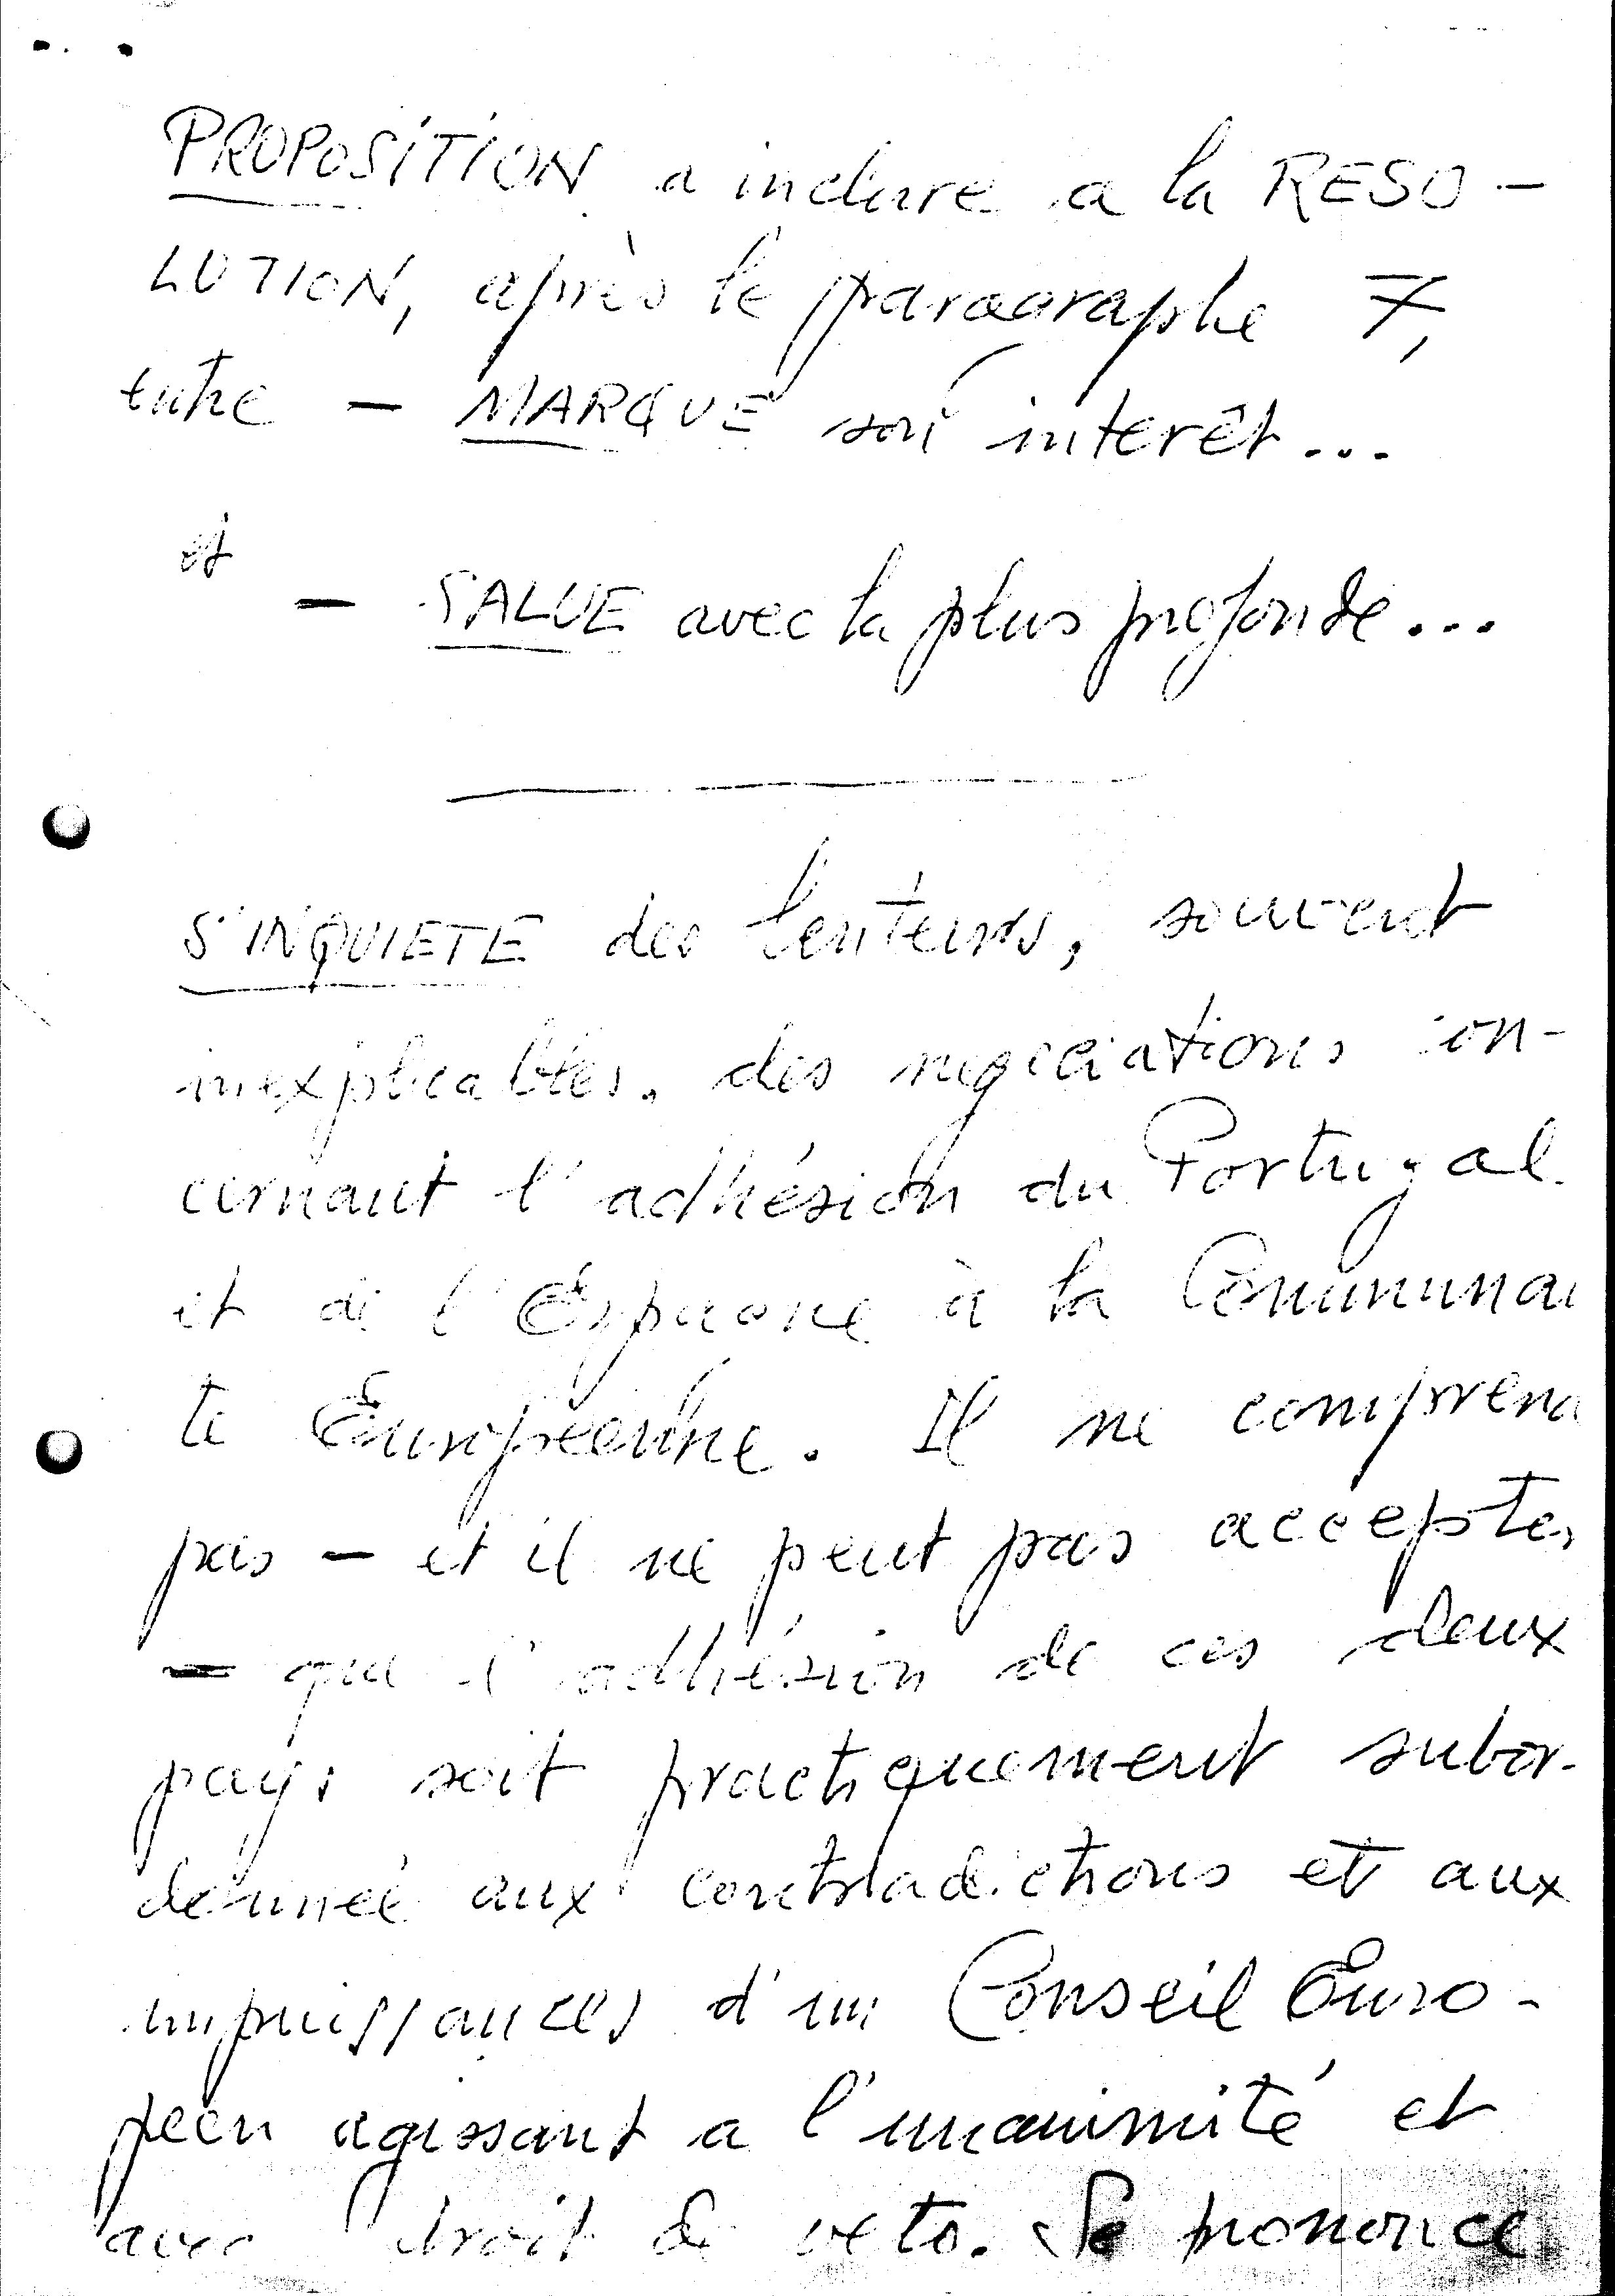 PROPOSITION a inclure a la RESO-
LUTION, après le paragraphe 7,
entre - MARQUE son interêt...
et
- SALUE avec la plus profonde...
S'INQUIETE des lenteurs, souvent
inexplicables, des negociations con-
cernant l'adhésion du Portugal
et de l'Espagne à la Communau
te Européenne. Il ne comprend
pas - et il ne peut pas accepter
- que l'adhésion de ces deux
pays soit practiquement subor-
donnée aux contradictions et aux
impuissances d'un Conseil Euro-
peen agissant a l'unanimité et
avec droit de veto. Se prononce